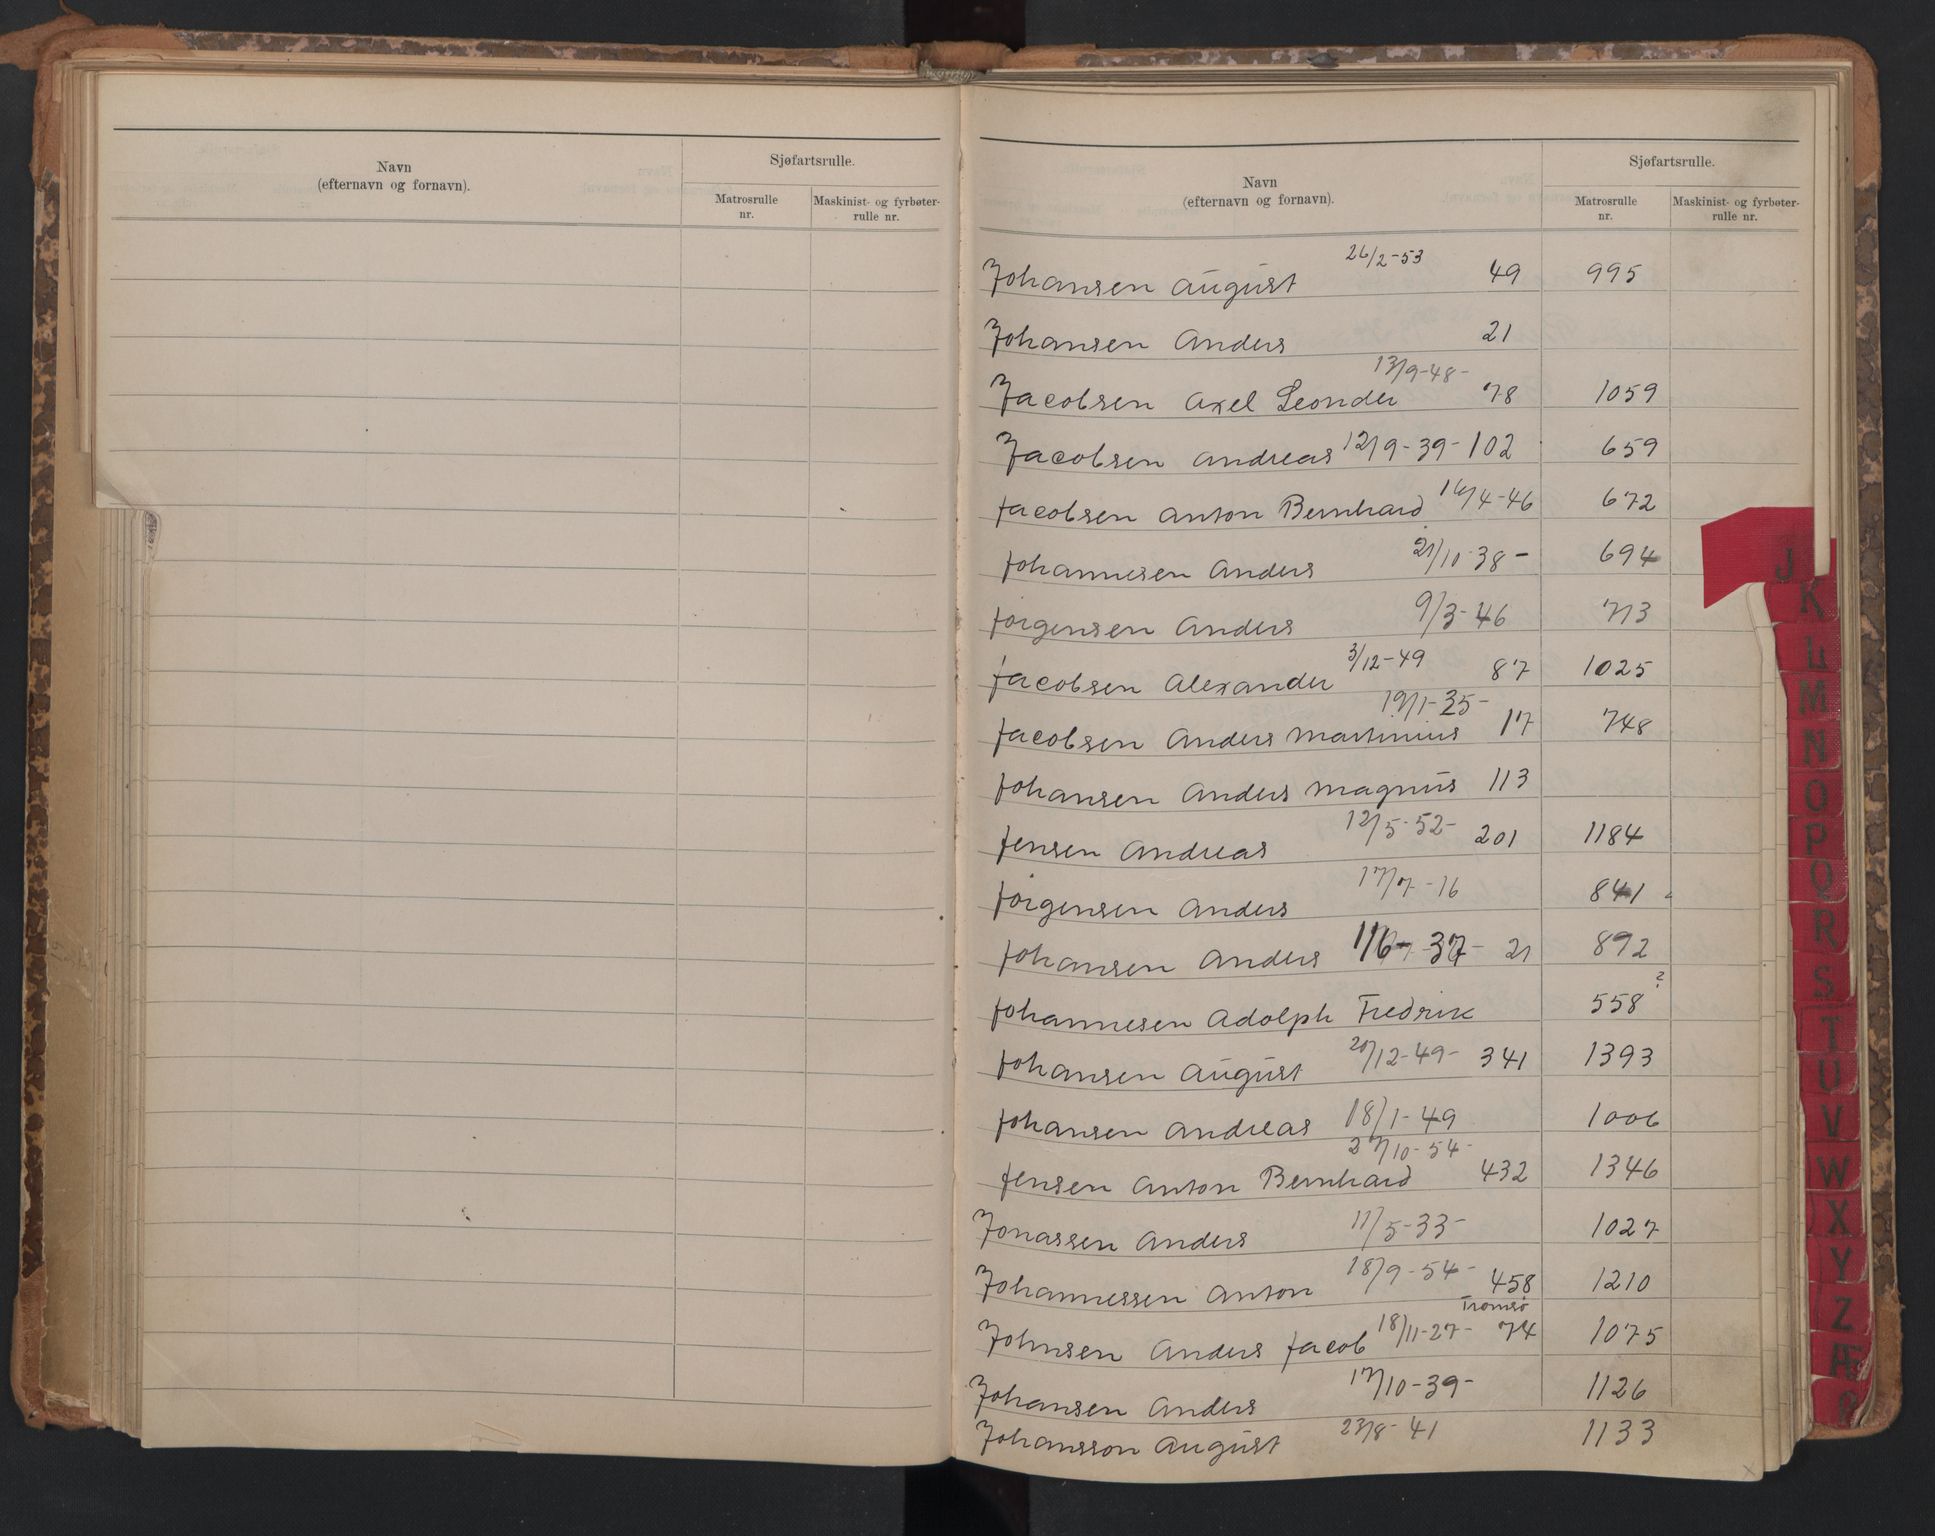 Navn
(efternavn og fornavn).
Sjøfartsrulle.
Matrosrulle
nr.
Maskinist- og fyrbøter-
rulle nr.
Navn
(efternavn og fornavn).
Sjøfartsrulle.
Matrosrulle
nr.
Maskinist- og fyrbøter-
rulle nr.
Johansen August 26/2-53 49 995
Johansen Anders 21
Jacobsen Axel Leonder 13/9-48- 78 1059
Jacobsen Andreas 12/9-39-102 659
Jacobsen Anton Bernhard 14/4-46 672
Johannesen Anders 21/10-38- 694
Jørgensen Anders 9/3-46 713
Jacobsen Alexander 3/12-49 87 1025
Jacobsen Anders Martinius 19/1-35- 17 748
Johansen Anders Magnus 113
Jensen Andreas 12/5-52- 201 1184
Jørgensen Anders 17/7-16 841
Johansen Anders 37- 21 892
Johannesen Adolph Fredrik 558 ?
Johansen August 20/12-49- 341 1393
Johansen Andreas 18/1-49 1006
Jensen Anton Bernhard 27/10-54- 432 1346
Jonassen Anders 11/5-33- 1027
Johannessen Anton 18/9-54- 458 1210
Tromsø
Johnsen Anders Jacob 18/11-27- 74 1075
Johansen Anders 17/10-39- 1126
Johansson August 23/8-41 1133
J
K
L
M
N
O
P
Q
R
S
T
U
V
W
X
Y
Z
Æ
Ø